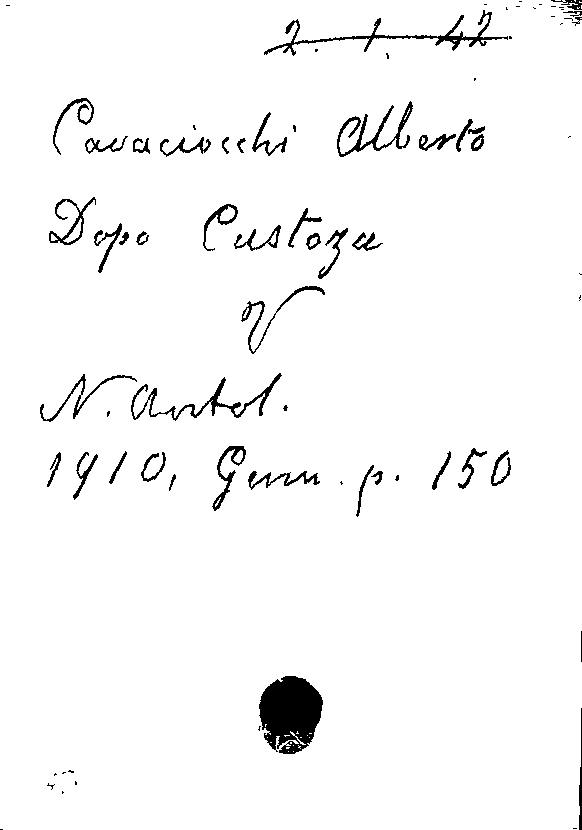 2. 1. 42
Cavaciocchi Alberto
Dopo Custoza
V
N. Antol.
1910, Genn. p. 150